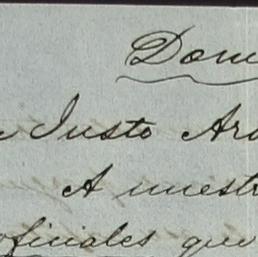 Dom
Justo Ara
A nuestr
oficiales que